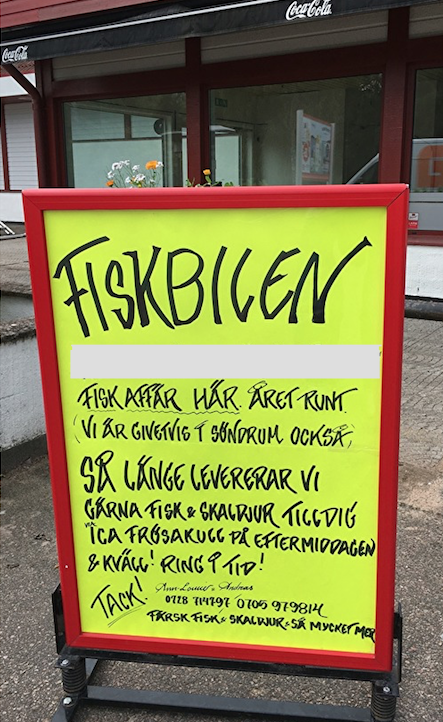 Coca-Cola
Coca-Cola
FISKBILEN
FISKAFFÄR HÄR. ÅRET RUNT.
(VI ÄR GIVETVIS I SÖNDRUM OCKSÅ)
SÅ LÄNGE LEVERERAR VI
GÄRNA FISK & SKALDJUR TILL DIG
VIA ICA FRÖSAKULL PÅ EFTERMIDDAGEN
& KVÄLL! RING I TID!
TACK! Ann-Louise & Andreas
0728 714797 0705 979814
FÄRSK FISK & SKALDJUR & SÅ MYCKET MER